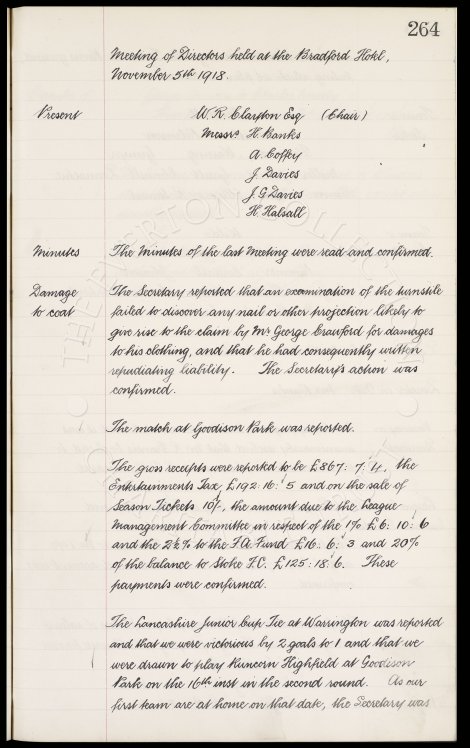 264
Meeting of Directors held at the Bradford Hotel,
November 5th 1918.
Present W. R. Clayton Esq (Chair)
Messrs H. Banks
A. Coffey
J. Davies
J. G. Davies
H. Halsall
Minutes The Minutes of the last Meeting were read and confirmed.
Damage The Secretary reported that an examination of the turnstile
to coat failed to discover any nail or other projection likely to
give rise to the claim by Mr. George Crawford for damages
to his clothing, and that he had consequently written
repudiating liability. The Secretary's action was
confirmed.
The match at Goodison Park was reported.
The gross receipts were reported to be £867: 7: 4, the
Entertainments Tax £192: 16: 5 and on the sale of
Season Tickets 10/-, the amount due to the League
Management Committee in respect of the 1% £6: 10: 6
and the 2½% to the F.A. Fund £16: 6: 3 and 20%
of the balance to Stoke F.C. £125: 18: 6. These
payments were confirmed.
The Lancashire Junior Cup Tie at Warrington was reported
and that we were victorious by 2 goals to 1 and that we
were drawn to play Runcorn Highfield at Goodison
Park on the 16th inst in the second round. As our
first team are at home on that date, the Secretary was
THE EVERTON COLLECTION